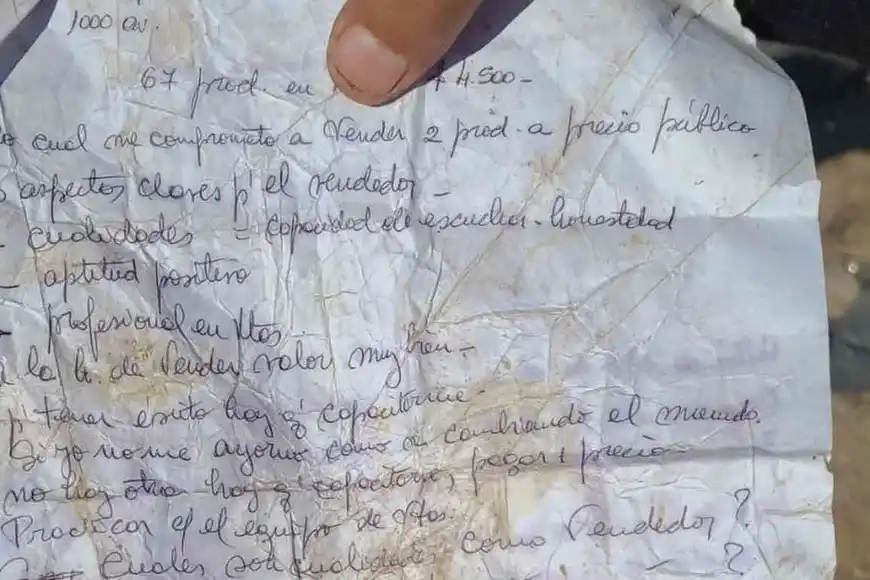 1000 av.
67 prod. en $ 4.500-
o cual me comprometo a Vender 2 prod. a precio público
s aspectos claves p' el vendedor -
- cualidades = capacidad de escuchar - honestidad
- aptitud positiva
- profesional en Vtas
a la h. de Vender valor muy bien -
p' tener éxito hay q' capacitarse -
Si yo no me ayorno como va cambiando el mundo.
no hay otra hay q' capacitarse, pagar 1 precio -
Practicar c/ el equipo de Vtas.
Cuales son cualidades como Vendedor?
- ?